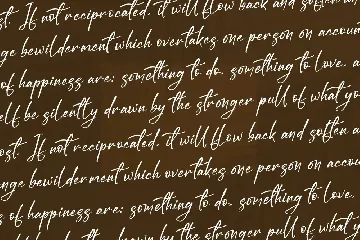 ost. If not reciprocated, it will flow back and soften an
nge bewilderment which overtakes one person on accoun
of happiness are: something to do, something to love, a
elf be silently drawn by the stronger pull of what yo
ost. If not reciprocated, it will flow back and soften a
nge bewilderment which overtakes one person on accou
s of happiness are: something to do, something to love,
be silently drawn by the stronger pull of what y